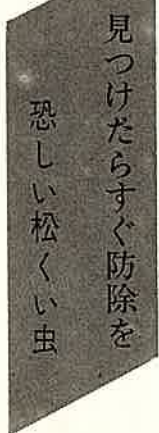 見つけたらすぐ防除を
恐しい松くい虫